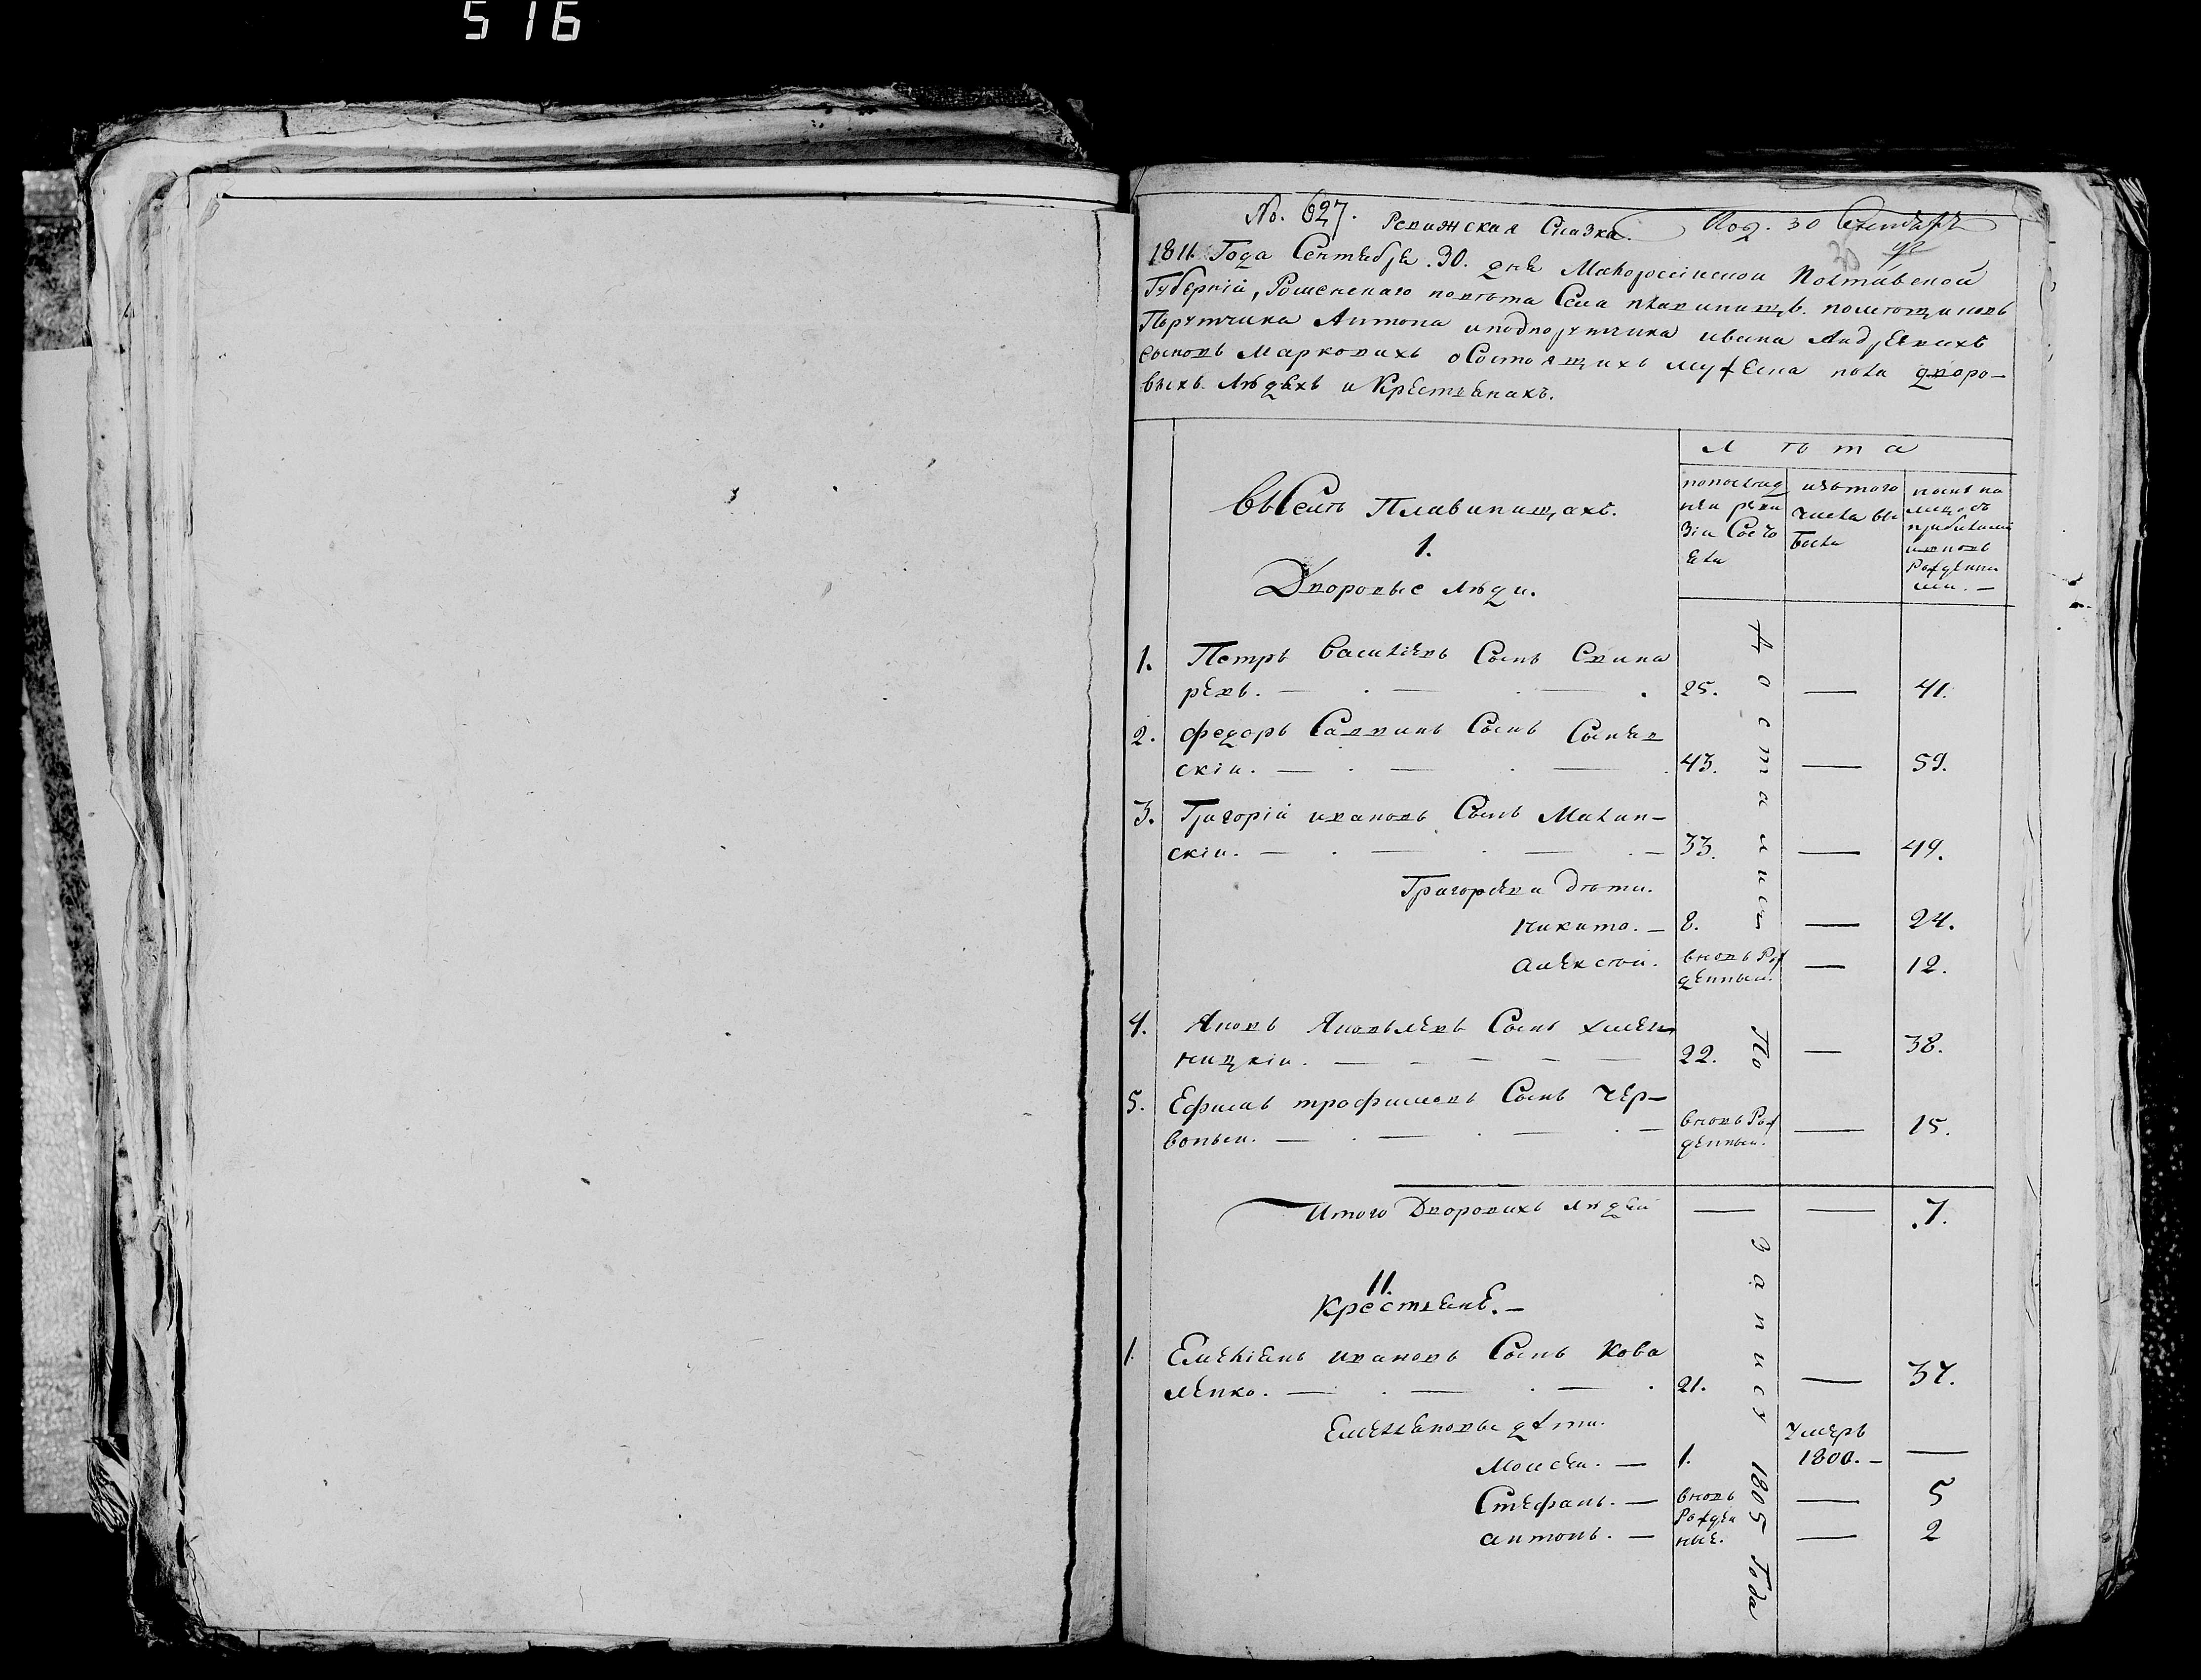 516
No. 627. Ревижская Сказка. Под. 30 Сентябр
1811. Года Сентября. 30. дня Малороссийской Полтавской
Губерній, Роменскаго повѣта Села плавинищъ. помѣщиковъ
Порутчика Антона и подпорутчика ивана Андреевихъ
сыновъ Марковихъ о Состоящихъ мужеска пола дворо-
выхъ людяхъ и Крестьянахъ.
Лѣта
выСелѣ Плавинищахъ.
1.
Дворовые люди.
по послѣд
ней реви
зіи Состо
яли
изътого
числа вы
было
нынѣ на
лицо съ
прибылими
и вновь
Рожденни
ми. —
1. Петръ василіевъ Сынъ Свина
ревъ. — 25. — 41.
2. федоръ Саввинъ Сынъ Сынев
скіи. — 43. — 59.
3. Григорій ивановъ Сынъ Малин-
скіи. — 33. — 49.
Григорѣви дѣти.
Никита. — 8. — 24.
алексѣй. вновь Рож
денный. — 12.
4. Яковъ Яковьлевъ Сынъ хмель
ницкіи. — 22. — 38.
5. Ефимъ трофимовъ Сынъ Чер-
воный. — вновь Рож
денный. — 15.
Итого Дворовихъ людей — — 7.
11.
Крестьяне. —
1. Емельянъ ивановъ Сынъ Кова
ленко. — 21. — 37.
Емельяновы дѣти.
Моисей. — 1. Умеръ
1800. — —
Стефанъ. — вновь — 5
антонъ. — Рожден
ные. — 2
Достались По Записѣ 1805 Года